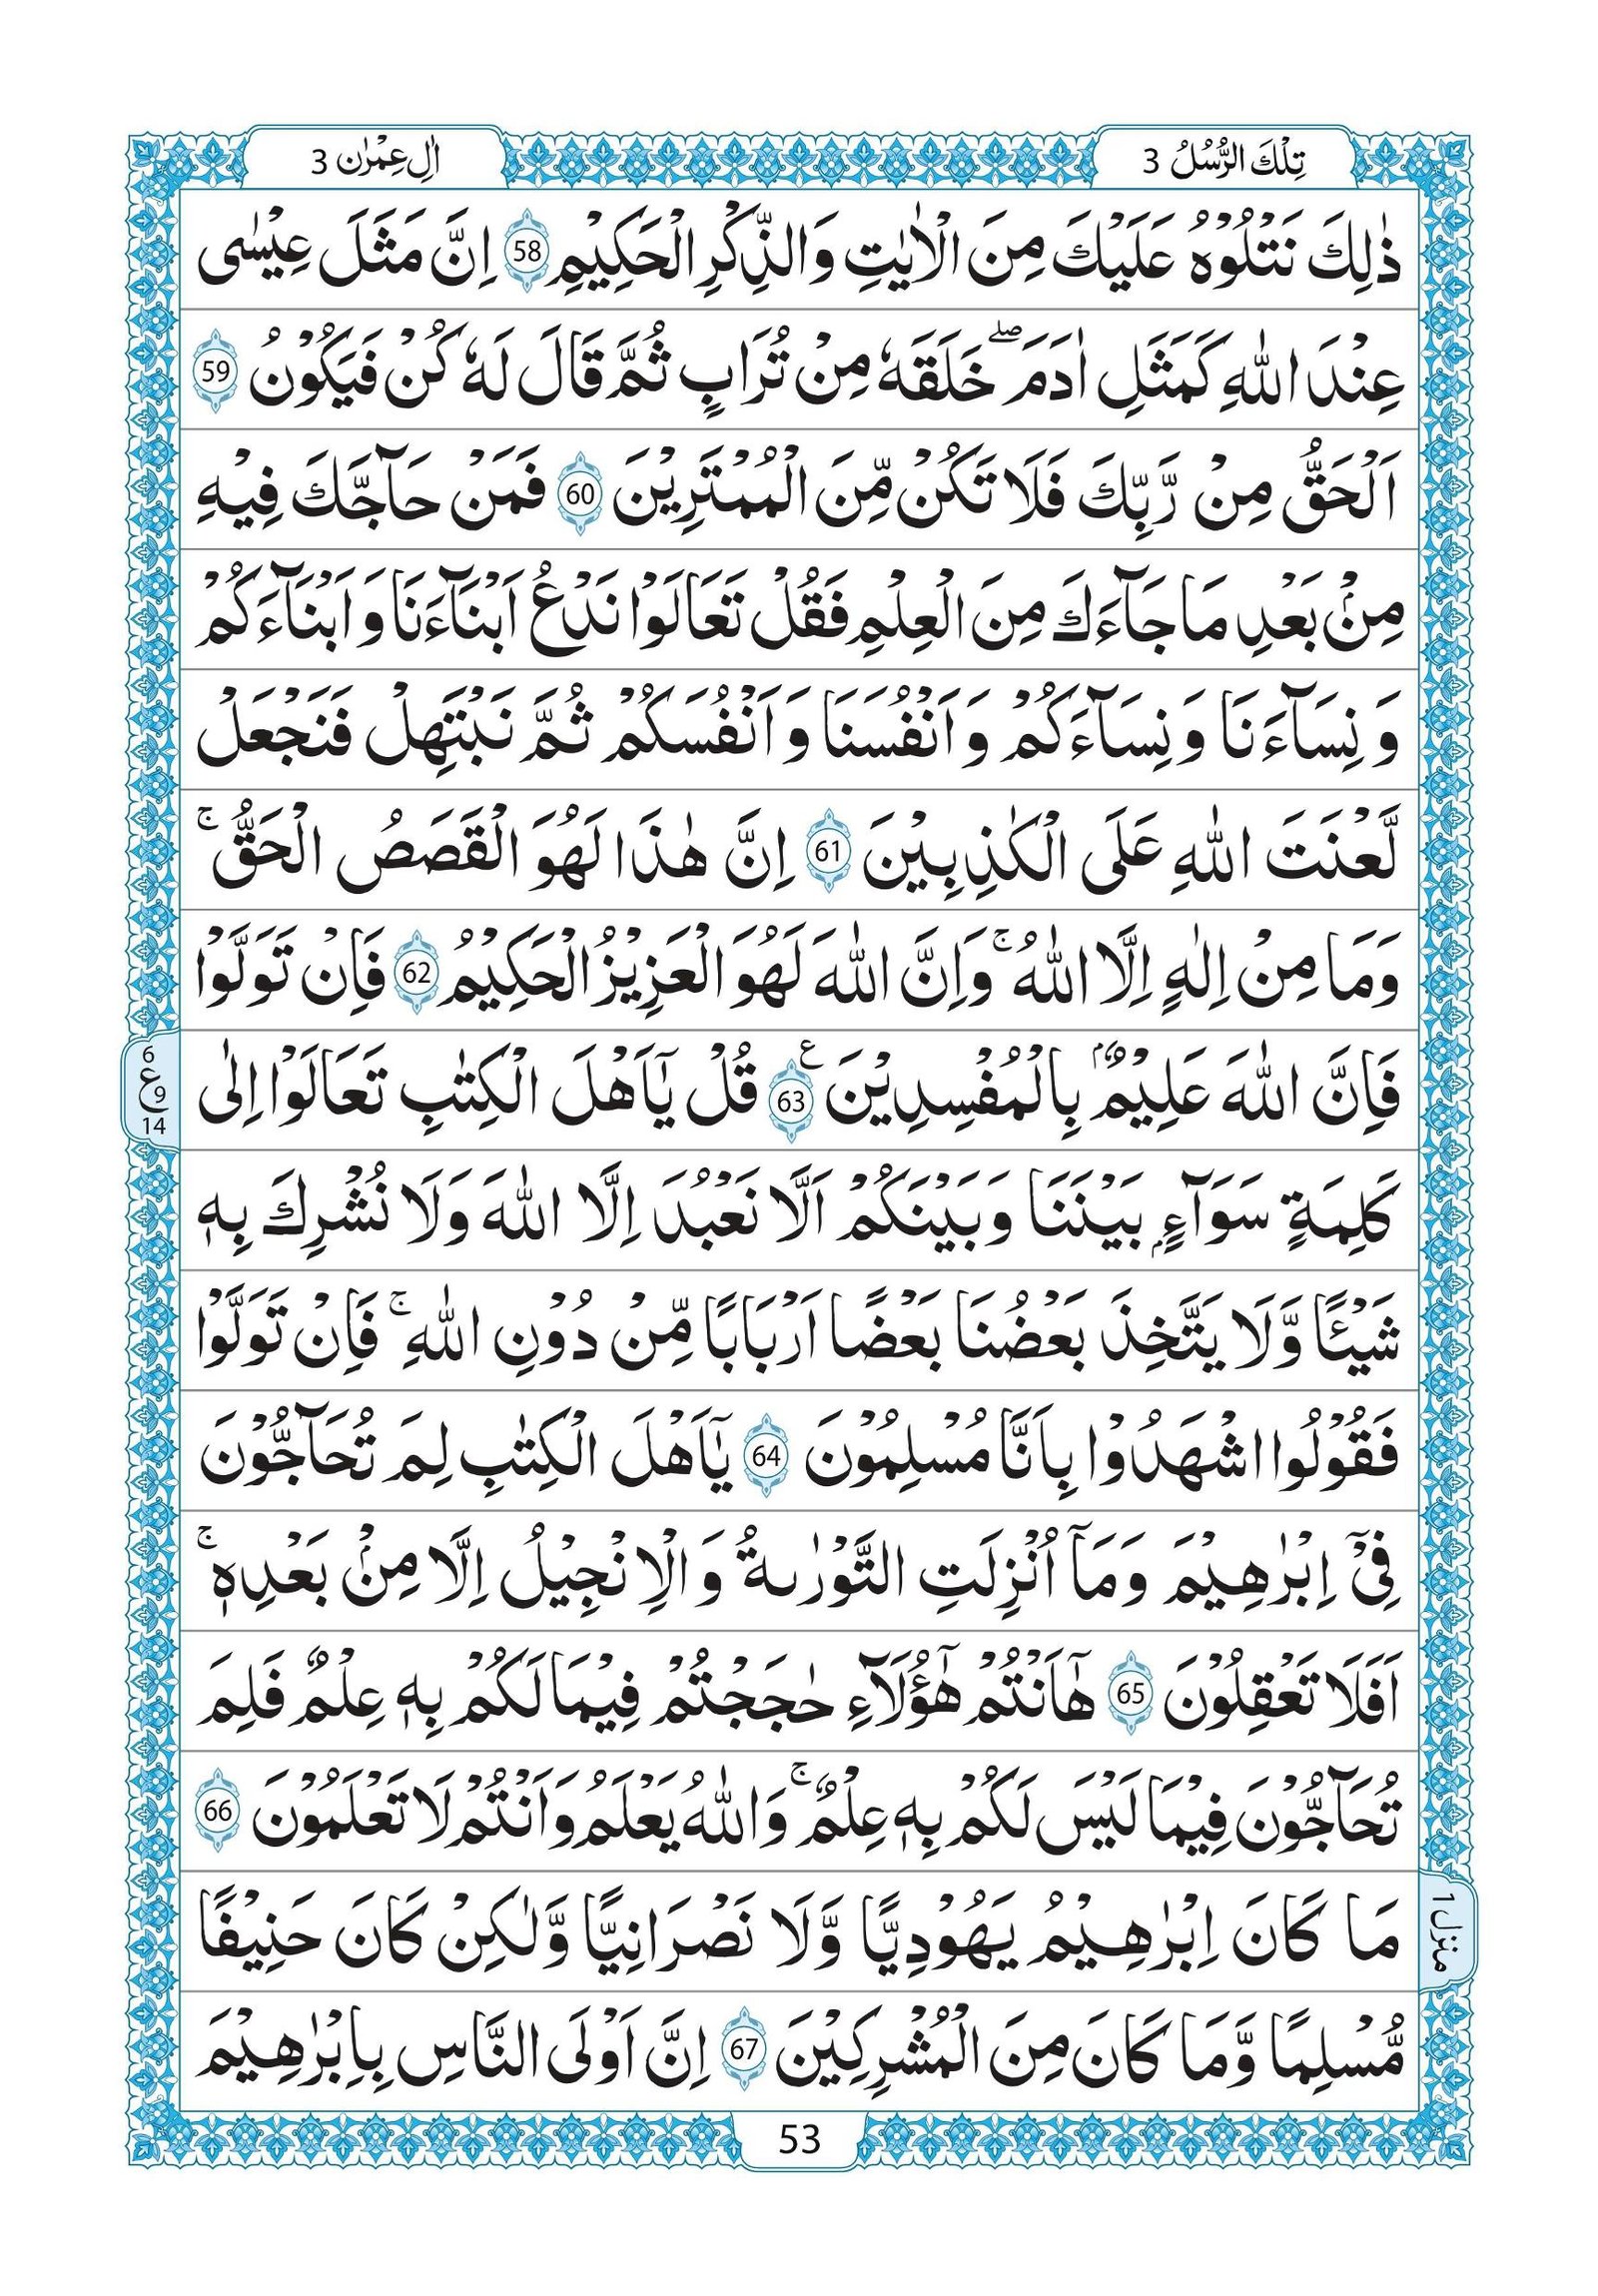 تِلْكَ الرُّسُلُ 3
اٰلِ عِمْرٰن 3
ذٰلِكَ نَتْلُوْهُ عَلَيْكَ مِنَ الْاٰيٰتِ وَالذِّكْرِ الْحَكِيْمِ 58 اِنَّ مَثَلَ عِيْسٰى
عِنْدَ اللّٰهِ كَمَثَلِ اٰدَمَ ۖ خَلَقَهٗ مِنْ تُرَابٍ ثُمَّ قَالَ لَهٗ كُنْ فَيَكُوْنُ 59
اَلْحَقُّ مِنْ رَّبِّكَ فَلَا تَكُنْ مِّنَ الْمُمْتَرِيْنَ 60 فَمَنْ حَآجَّكَ فِيْهِ
مِنْۢ بَعْدِ مَا جَآءَكَ مِنَ الْعِلْمِ فَقُلْ تَعَالَوْا نَدْعُ اَبْنَآءَنَا وَاَبْنَآءَكُمْ
وَنِسَآءَنَا وَنِسَآءَكُمْ وَاَنْفُسَنَا وَاَنْفُسَكُمْ ثُمَّ نَبْتَهِلْ فَنَجْعَلْ
لَّعْنَتَ اللّٰهِ عَلَى الْكٰذِبِيْنَ 61 اِنَّ هٰذَا لَهُوَ الْقَصَصُ الْحَقُّ ۚ
وَمَا مِنْ اِلٰهٍ اِلَّا اللّٰهُ ۚ وَاِنَّ اللّٰهَ لَهُوَ الْعَزِيْزُ الْحَكِيْمُ 62 فَاِنْ تَوَلَّوْا
فَاِنَّ اللّٰهَ عَلِيْمٌۢ بِالْمُفْسِدِيْنَ ع 63 قُلْ يٰٓاَهْلَ الْكِتٰبِ تَعَالَوْا اِلٰى
6
ع 9
14
كَلِمَةٍ سَوَآءٍۭ بَيْنَنَا وَبَيْنَكُمْ اَلَّا نَعْبُدَ اِلَّا اللّٰهَ وَلَا نُشْرِكَ بِهٖ
شَيْئًا وَّلَا يَتَّخِذَ بَعْضُنَا بَعْضًا اَرْبَابًا مِّنْ دُوْنِ اللّٰهِ ۚ فَاِنْ تَوَلَّوْا
فَقُوْلُوا اشْهَدُوْا بِاَنَّا مُسْلِمُوْنَ 64 يٰٓاَهْلَ الْكِتٰبِ لِمَ تُحَآجُّوْنَ
فِيْٓ اِبْرٰهِيْمَ وَمَآ اُنْزِلَتِ التَّوْرٰىةُ وَالْاِنْجِيْلُ اِلَّا مِنْۢ بَعْدِهٖ ۚ
اَفَلَا تَعْقِلُوْنَ 65 هٰٓاَنْتُمْ هٰٓؤُلَآءِ حٰجَجْتُمْ فِيْمَا لَكُمْ بِهٖ عِلْمٌ فَلِمَ
تُحَآجُّوْنَ فِيْمَا لَيْسَ لَكُمْ بِهٖ عِلْمٌ ۚ وَاللّٰهُ يَعْلَمُ وَاَنْتُمْ لَا تَعْلَمُوْنَ 66
مَا كَانَ اِبْرٰهِيْمُ يَهُوْدِيًّا وَّلَا نَصْرَانِيًّا وَّلٰكِنْ كَانَ حَنِيْفًا
منزل 1
مُّسْلِمًا وَّمَا كَانَ مِنَ الْمُشْرِكِيْنَ 67 اِنَّ اَوْلَى النَّاسِ بِاِبْرٰهِيْمَ
53